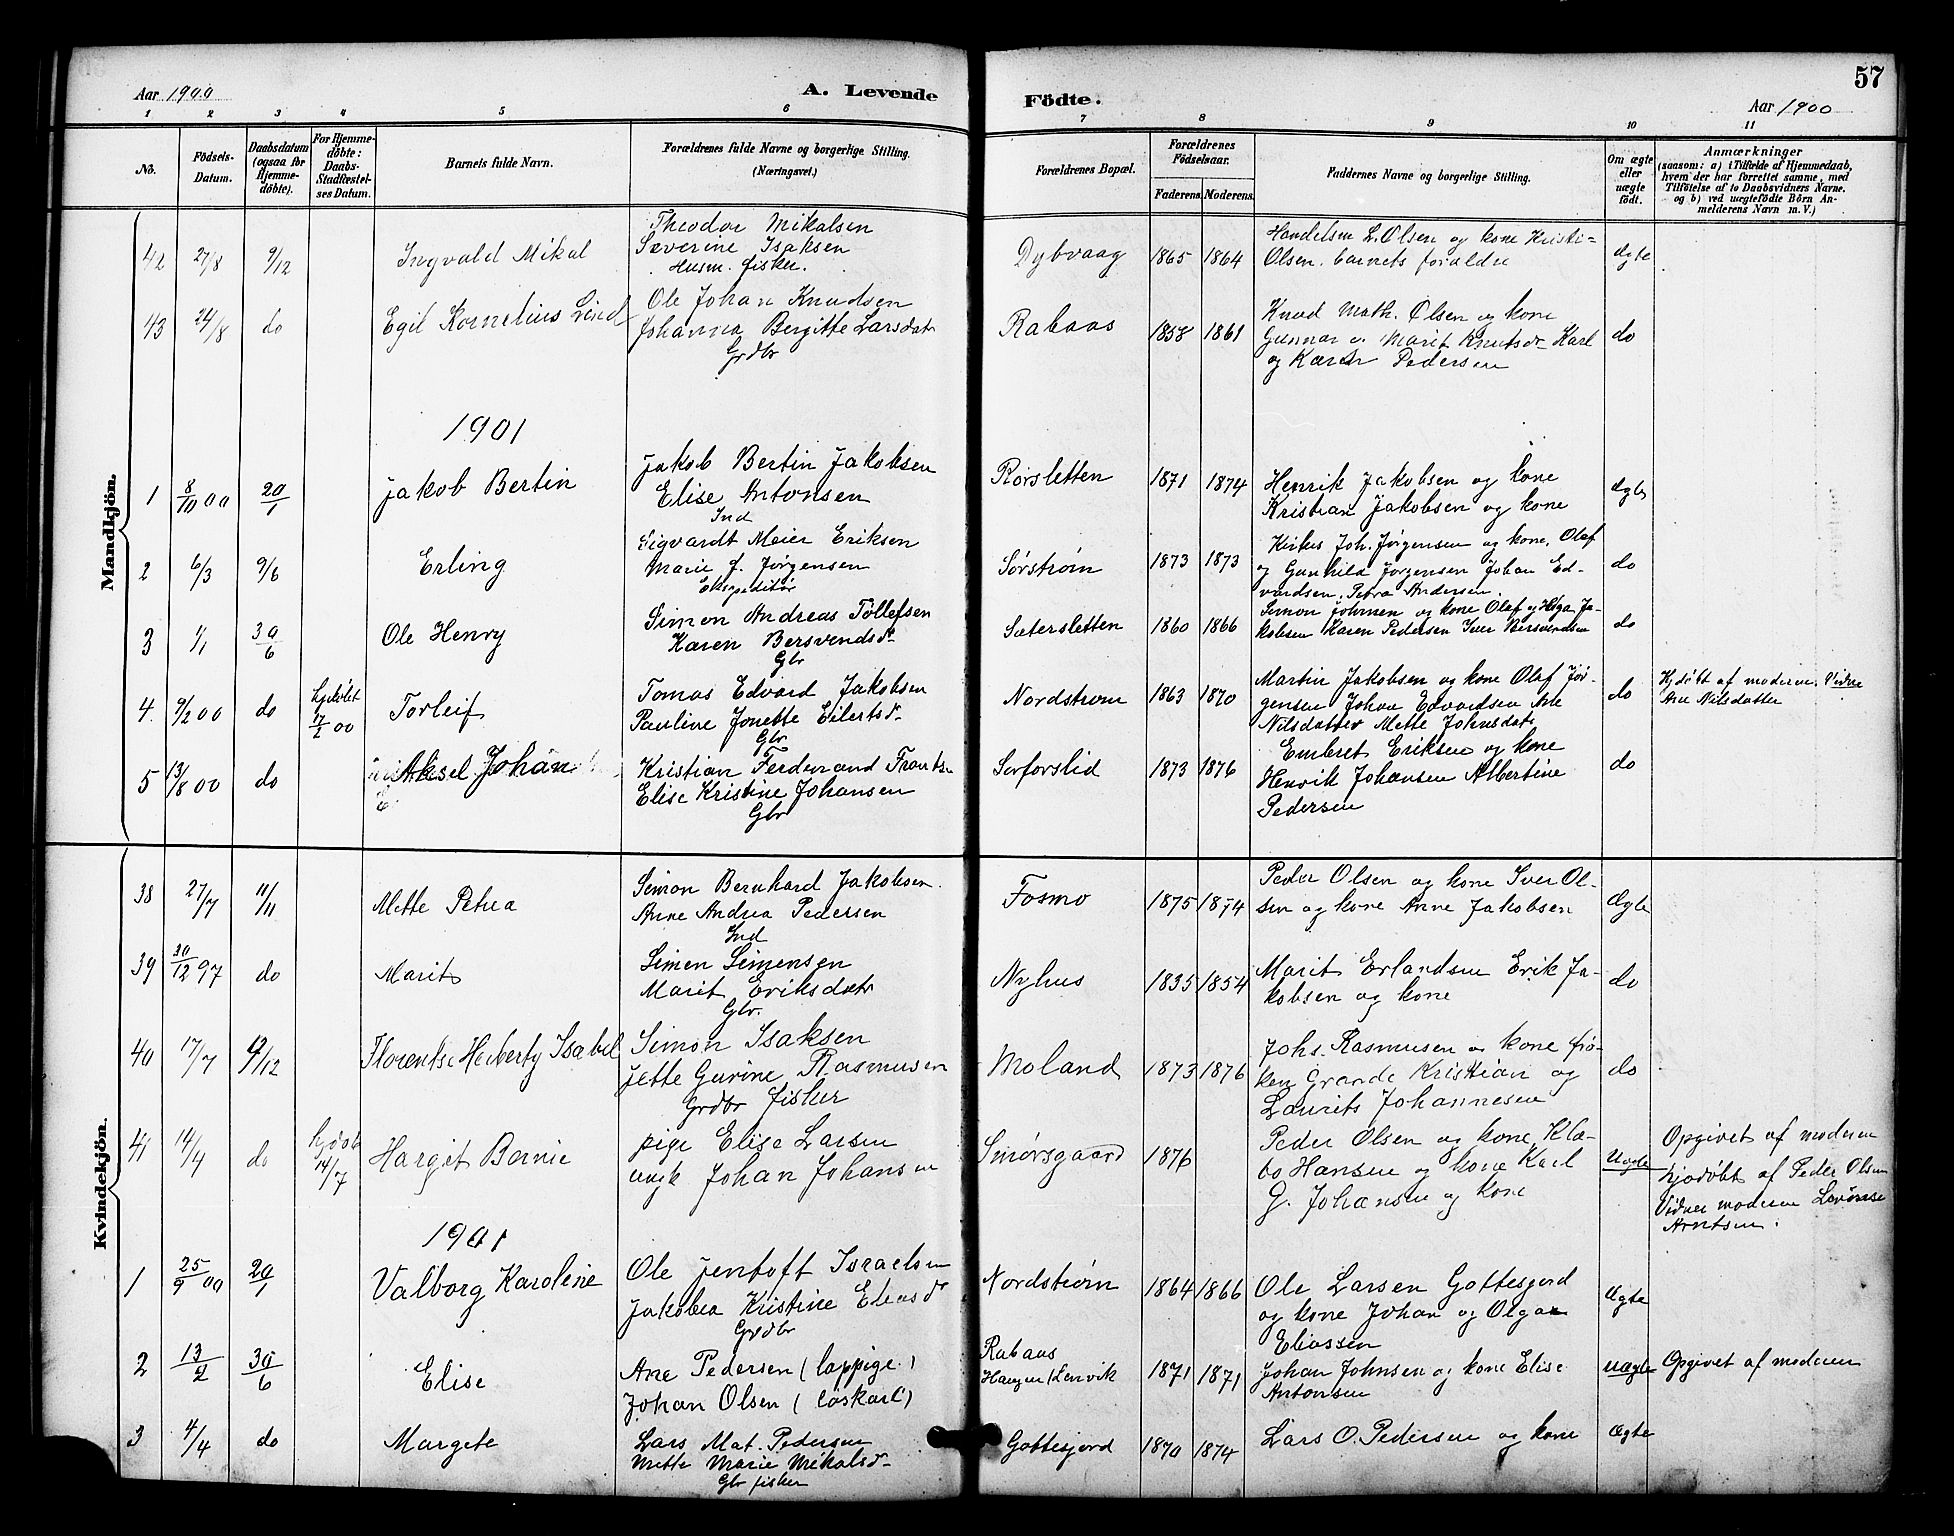 57
Aar 1900
A. Levende
Födte.
Aar 1900
1 2 3 4 5 6 7 8 9 10 11
No.
Födsels-Datum.
Daabsdatum (ogsaa for Hjemme-döbte).
For Hjemme-döbte: Daabs-Stadfæstel-ses Datum.
Barnets fulde Navn.
Forældrenes fulde Navne og borgerlige Stilling. (Næringsvei.)
Forældrenes Bopæl.
Forældrenes Födselsaar.
Faderens. Moderens.
Faddernes Navne og borgerlige Stilling.
Om ægte eller uægte födt.
Anmærkninger
(saasom: a) i Tilfælde af Hjemmedaab, hvem der har forrettet samme, med Tilföielse af to Daabsvidners Navne. og b) ved uægtefödte Börn An-melderens Navn m. V.)
Mandkjön.
42 27/8 9/12 Ingvald Mikal
Theodor Mikalsen
Severine Isaksen
Husm. fisker.
Dybvaag 1865 1864
Handelsm L. Olsen og kone Kristi-
Olsen. barnets forældre
ægte
43 24/8 do Egil Kornelius Lind
Ole Johan Knudsen
Johanna Bergitte Larsdatr
Grdbr
Rabaas 1858 1861
Knud Math. Olsen og kone
Gunnar o. Marit Knutsdr Karl
og Karen Pedersen
do
1901
1 8/10 00 20/1 Jakob Bertin
Jakob Bertin Jakobsen
Elise Antonsen
Ind
Rörsletten 1871 1874
Henrik Jakobsen og kone
Kristian Jakobsen og kone
ægte
2 6/3 9/6 Erling
Sigvardt Meier Eriksen
Marie J. Jørgensen
Ekspeditør
Sørstrøm 1873 1873
Kirkes Joh. Jørgensen og kone. Olaf
og Gunhild Jørgensen Johan Ed-
vardsen. Petra Andersen.
do
3 1/1 30/6 Ole Henry
Simon Andreas Tollefsen
Karen Bersvendsdr
Gbr
Sætersletten 1860 1866
Simon Johnsen og kone Olaf og Helga Ja-
kobsen Karen Pedersen Iver Bersvendsen
do
4. 9/2 00 do 17/2 00 Torleif
Tomas Edvard Jakobsen
Pauline Jonette Eilertsdr
Gbr
Nordstrøm 1863 1870
Martin Jakobsen og kone Olaf Jör-
gensen Johan Edvardsen Ane
Nilsdatter Mette Johnsdatr
do
Hjdøbt af moderen. Vidne
Ane Nilsdatter
5 13/8 00 do Aksel Johan
Kristian Ferdinand Frantsen
Elise Kristine Johansen
Gbr
Sørforslid 1873 1876
Embret Eriksen og kone
Henrik Johansen Albertine
Pedersen
do
Kvindekjön.
38 27/7 11/11 Mette Petrea
Simon Bernhard Jakobsen.
Anne Andrea Pedersen
Ind
Fosmo 1875 1874
Peder Olsen og kone Iver Ol-
sen og kone Anne Jakobsen
Ægte
39 30/12 97 do Marit
Simen Simensen
Marit Eriksdatr
Gbr.
Nyhus 1835 1854
Marit Erlandsen Erik Ja-
kobsen og kone
do
40 17/7 9/12 Florentse Herberty Isabel
Simon Isaksen
Jette Gurine Rasmusen
Grdbr fisker
Moland 1873 1876
Johs. Rasmusen og kone frö-
ken Grande Kristian og
Laurits Johannesen
do
41 14/4 do hjdøbt 14/7 Hargit Bernie
pige Elise Larsen
ungk Johan Johansen
Smørsgaard 1876
Peder Olsen og kone Klæ-
bo Hansen og kone Karl
G. Johansen og kone
Uægte
Opgivet af moderen
hjdøbt af Peder Olsen
Vidner moderen Lovise
Arntsen.
1901
1 25/9 00 20/1 Valborg Karoline
Ole Jentoft Israelsen
Jakobea Kristine Eliasdr
Grdbr
Nordstrøm 1864 1866
Ole Larsen Gottesjord
og kone Johan og Olga
Eliassen
Ægte
2 13/2 30/6 Elise
Ane Pedersen (lappige.)
Johan Olsen (løskarl)
Rabaas
Haugen Lenvik 1871 1871
Johan Johnsen og kone Elise
Antonsen
uægte
Opgivet af moderen
3 4/4 do Margete
Lars Mat. Pedersen
Mette Marie Mikalsdr
Gbr fisker
Gottesjord 1870 1874
Lars O. Pedersen og kone
Ægte